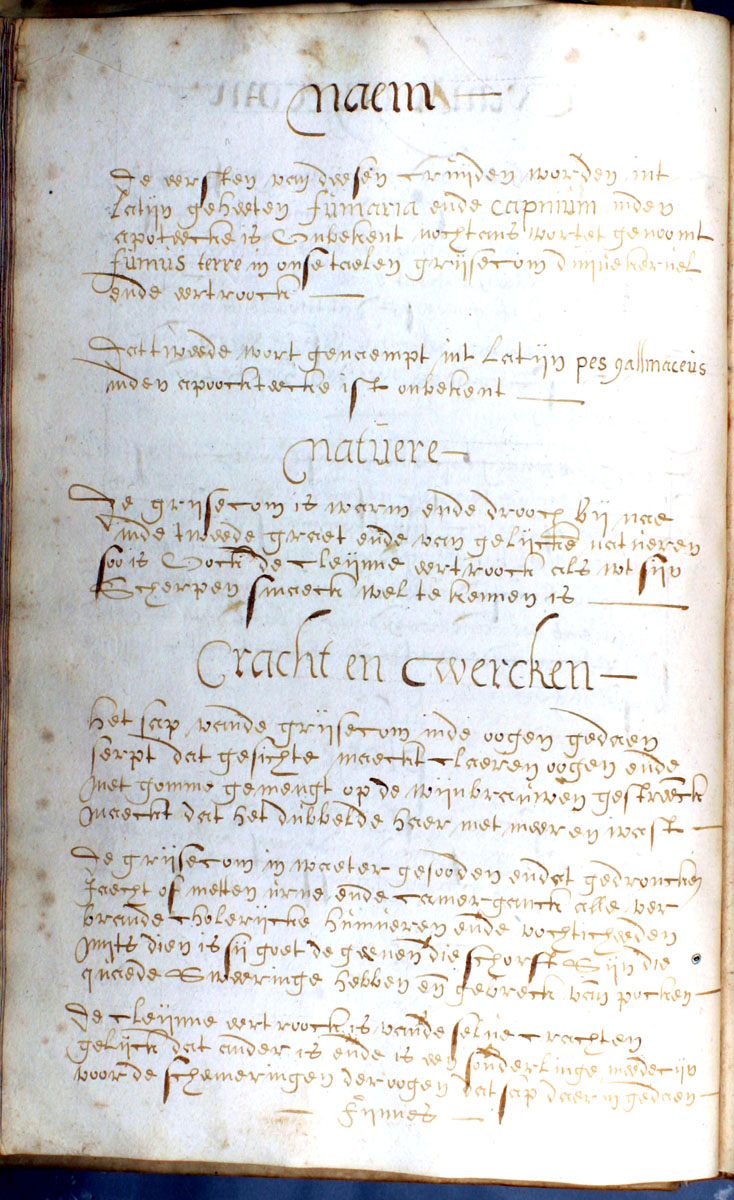 Naem
De eersten van deesen cruijden worden int
Latijn geheeten fumaria ende capnium inden
apoteecke is onbekent nochtans wortet genoomt
fumus terre in onse taelen grijsecom duijvekervel
ende eertroock
Dat tweede wort genaempt int Latijn pes gallinaceus
inden apoockteecke ist onbekent
Natuere
De grijsecom is warm ende drooch bij nae
inde tweede graet ende van gelijcke natueren
soo is oock de cleijnne eertroock als wt sijn
scherpen smaeck wel te kennen is
Cracht en Twercken
Het sap vande grijsecom inde oogen gedaen
serpt dat gesichte maeckt claeren oogen ende
Met gomme gemengt op de wijnbrauwen gestreeck
Maeckt dat het dubbelde haer niet meer en wast
De grijsecom in waeter gesooden endat gedroncken
Jaecht of metten urine ende camerganck alle ver
brande cholerijcke humueren ende vochticheeden
Mits dien is sij goet de geenen die schorft sijn die
quaede sweeringe hebben en gebreck van pocken
De cleijnne eertroock is vande selve crachten
gelijck dat ander is ende is een sonderlinge meedecijn
voor de schemeringen der oogen dat sap daer in gedaen
Fijnnes